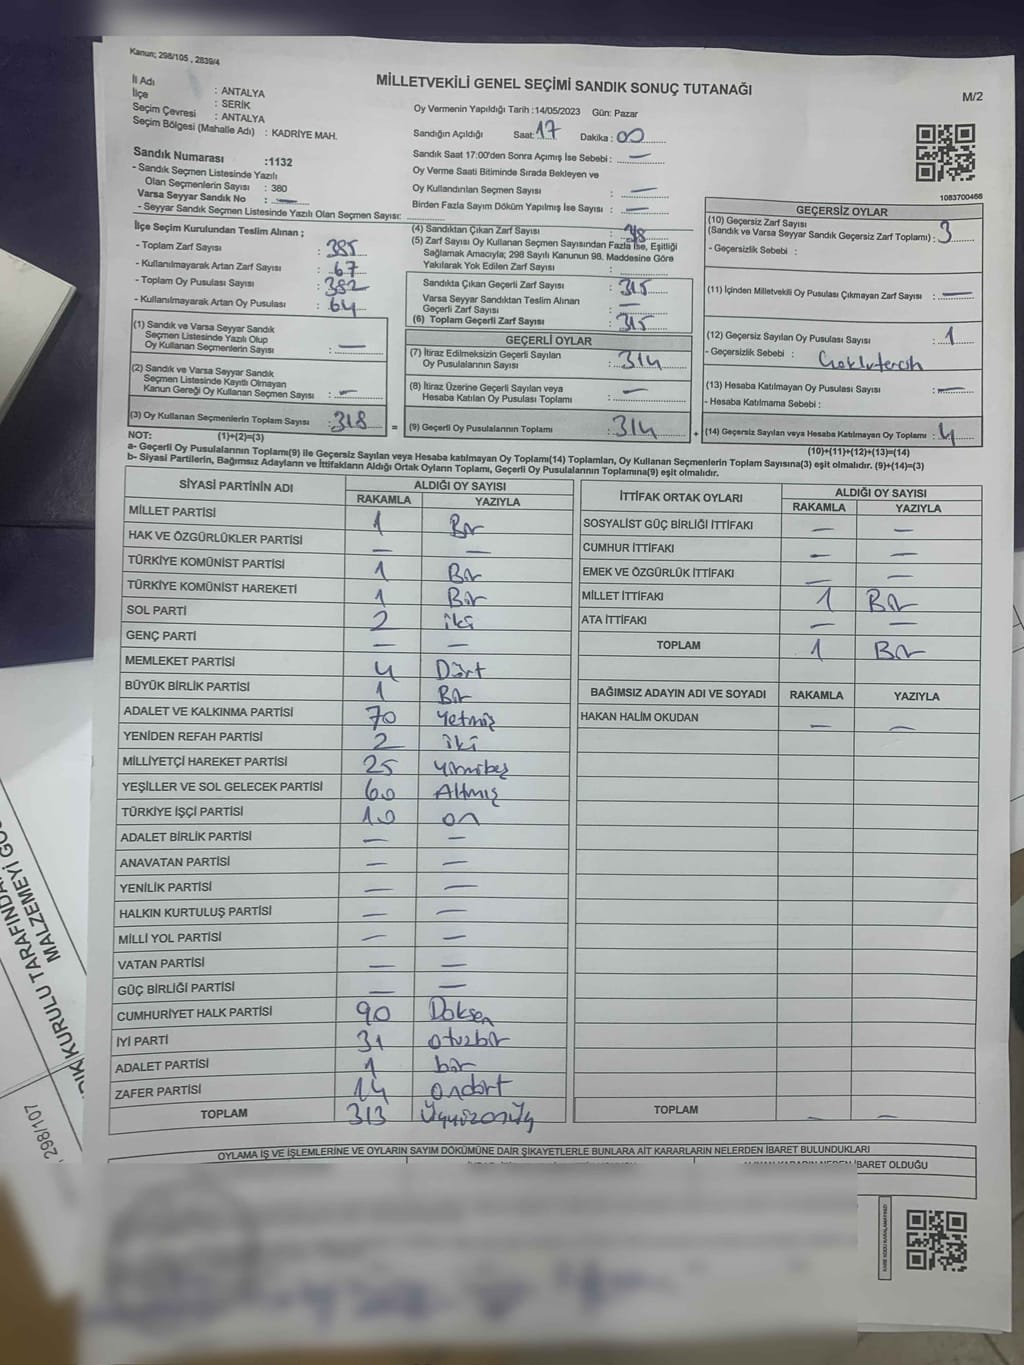 Kanun; 298/105 , 2839/4
MİLLETVEKİLİ GENEL SEÇİMİ SANDIK SONUÇ TUTANAĞI
M/2
İl Adı : ANTALYA
İlçe : SERİK
Seçim Çevresi : ANTALYA
Seçim Bölgesi (Mahalle Adı) : KADRİYE MAH.
Sandık Numarası :1132
- Sandık Seçmen Listesinde Yazılı
Olan Seçmenlerin Sayısı : 380
Varsa Seyyar Sandık No : —
- Seyyar Sandık Seçmen Listesinde Yazılı Olan Seçmen Sayısı:
Oy Vermenin Yapıldığı Tarih :14/05/2023 Gün: Pazar
Sandığın Açıldığı Saat: 17 Dakika : 00
Sandık Saat 17:00'den Sonra Açımış İse Sebebi : —
Oy Verme Saati Bitiminde Sırada Bekleyen ve
Oy Kullandırılan Seçmen Sayısı : —
Birden Fazla Sayım Döküm Yapılmış İse Sayısı : —
1083700466
İlçe Seçim Kurulundan Teslim Alınan ;
- Toplam Zarf Sayısı : 385
- Kullanılmayarak Artan Zarf Sayısı : 67
- Toplam Oy Pusulası Sayısı : 382
- Kullanılmayarak Artan Oy Pusulası : 64
(1) Sandık ve Varsa Seyyar Sandık
Seçmen Listesinde Yazılı Olup
Oy Kullanan Seçmenlerin Sayısı : —
(2) Sandık ve Varsa Seyyar Sandık
Seçmen Listesinde Kayıtlı Olmayan
Kanun Gereği Oy Kullanan Seçmen Sayısı : —
(3) Oy Kullanan Seçmenlerin Toplam Sayısı : 318
(4) Sandıktan Çıkan Zarf Sayısı :
(5) Zarf Sayısı Oy Kullanan Seçmen Sayısından Fazla İse, Eşitliği
Sağlamak Amacıyla; 298 Sayılı Kanunun 98. Maddesine Göre
Yakılarak Yok Edilen Zarf Sayısı :
Sandıkta Çıkan Geçerli Zarf Sayısı : 315
Varsa Seyyar Sandıktan Teslim Alınan
Geçerli Zarf Sayısı : —
(6) Toplam Geçerli Zarf Sayısı : 315
GEÇERLİ OYLAR
(7) İtiraz Edilmeksizin Geçerli Sayılan
Oy Pusulalarının Sayısı : 314
(8) İtiraz Üzerine Geçerli Sayılan veya
Hesaba Katılan Oy Pusulası Toplamı : —
= (9) Geçerli Oy Pusulalarının Toplamı : 314 +
GEÇERSİZ OYLAR
(10) Geçersiz Zarf Sayısı
(Sandık ve Varsa Seyyar Sandık Geçersiz Zarf Toplamı) : 3
- Geçersizlik Sebebi :
(11) İçinden Milletvekili Oy Pusulası Çıkmayan Zarf Sayısı : —
(12) Geçersiz Sayılan Oy Pusulası Sayısı : 1
- Geçersizlik Sebebi : Çoklu tercih
(13) Hesaba Katılmayan Oy Pusulası Sayısı : —
- Hesaba Katılmama Sebebi :
(14) Geçersiz Sayılan veya Hesaba Katılmayan Oy Toplamı : 4
NOT: (1)+(2)=(3) (10)+(11)+(12)+(13)=(14)
a- Geçerli Oy Pusulalarının Toplamı(9) ile Geçersiz Sayılan veya Hesaba katılmayan Oy Toplamı(14) Toplamları, Oy Kullanan Seçmenlerin Toplam Sayısına(3) eşit olmalıdır. (9)+(14)=(3)
b- Siyasi Partilerin, Bağımsız Adayların ve İttifakların Aldığı Ortak Oyların Toplamı, Geçerli Oy Pusulalarının Toplamına(9) eşit olmalıdır.
SİYASİ PARTİNİN ADI ALDIĞI OY SAYISI
RAKAMLA YAZIYLA
MİLLET PARTİSİ 1 Bir
HAK VE ÖZGÜRLÜKLER PARTİSİ — —
TÜRKİYE KOMÜNİST PARTİSİ 1 Bir
TÜRKİYE KOMÜNİST HAREKETİ 1 Bir
SOL PARTİ 2 iki
GENÇ PARTİ — —
MEMLEKET PARTİSİ 4 Dört
BÜYÜK BİRLİK PARTİSİ 1 Bir
ADALET VE KALKINMA PARTİSİ 70 Yetmiş
YENİDEN REFAH PARTİSİ 2 iki
MİLLİYETÇİ HAREKET PARTİSİ 25 yirmibeş
YEŞİLLER VE SOL GELECEK PARTİSİ 60 Altmış
TÜRKİYE İŞÇİ PARTİSİ 10 on
ADALET BİRLİK PARTİSİ — —
ANAVATAN PARTİSİ — —
YENİLİK PARTİSİ — —
HALKIN KURTULUŞ PARTİSİ — —
MİLLİ YOL PARTİSİ — —
VATAN PARTİSİ — —
GÜÇ BİRLİĞİ PARTİSİ — —
CUMHURİYET HALK PARTİSİ 90 Doksan
İYİ PARTİ 31 otuzbir
ADALET PARTİSİ 1 bir
ZAFER PARTİSİ 14 ondört
TOPLAM 313 Üçyüzonüç
İTTİFAK ORTAK OYLARI ALDIĞI OY SAYISI
RAKAMLA YAZIYLA
SOSYALİST GÜÇ BİRLİĞİ İTTİFAKI — —
CUMHUR İTTİFAKI — —
EMEK VE ÖZGÜRLÜK İTTİFAKI — —
MİLLET İTTİFAKI 1 Bir
ATA İTTİFAKI — —
TOPLAM 1 Bir
BAĞIMSIZ ADAYIN ADI VE SOYADI RAKAMLA YAZIYLA
HAKAN HALİM OKUDAN — —
TOPLAM — —
OYLAMA İŞ VE İŞLEMLERİNE VE OYLARIN SAYIM DÖKÜMÜNE DAİR ŞİKAYETLERLE BUNLARA AİT KARARLARIN NELERDEN İBARET BULUNDUKLARI
İBARET OLDUĞU
KURULU TARAFINDAN
MALZEMEYİ
298/107